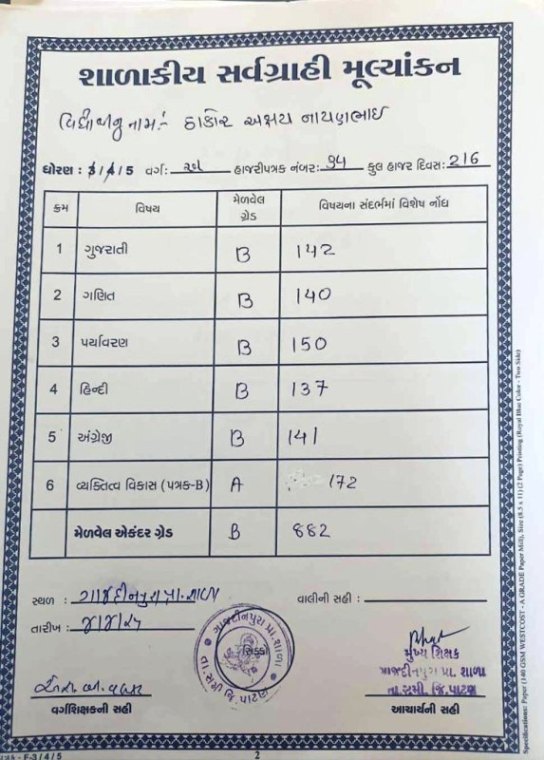 શાળાકીય સર્વગ્રાહી મૂલ્યાંકન
વિદ્યાર્થીનું નામ:- ઠાકોર અક્ષય નાયણભાઈ
ધોરણ : 3/4/5 વર્ગ: હાજરીપત્રક નંબર: 34 કુલ હાજર દિવસ: 216
ક્રમ વિષય મેળવેલ ગ્રેડ વિષયના સંદર્ભમાં વિશેષ નોંધ
1 ગુજરાતી B 142
2 ગણિત B 140
3 પર્યાવરણ B 150
4 હિન્દી B 137
5 અંગ્રેજી B 141
6 વ્યક્તિત્વ વિકાસ (પત્રક-B) A 172
મેળવેલ એકંદર ગ્રેડ B 882
સ્થળ : ગાજદીનપુરા પ્રા. શાળા વાલીની સહી :
તારીખ :
ગાજદીનપુરા પ્રા. શાળા
સિક્કો
તા. સમી જિ. પાટણ
મુખ્ય શિક્ષક
ગાજદીનપુરા પ્રા. શાળા
તા. સમી. જિ. પાટણ
વર્ગશિક્ષકની સહી આચાર્યની સહી
પત્રક - F-3 / 4 / 5 2
Specifications: Paper (140 GSM WESTCOST - A GRADE Paper Mill), Size (8.5 x 11) (2 Page) Printing (Royal Blue Color - Two Side)